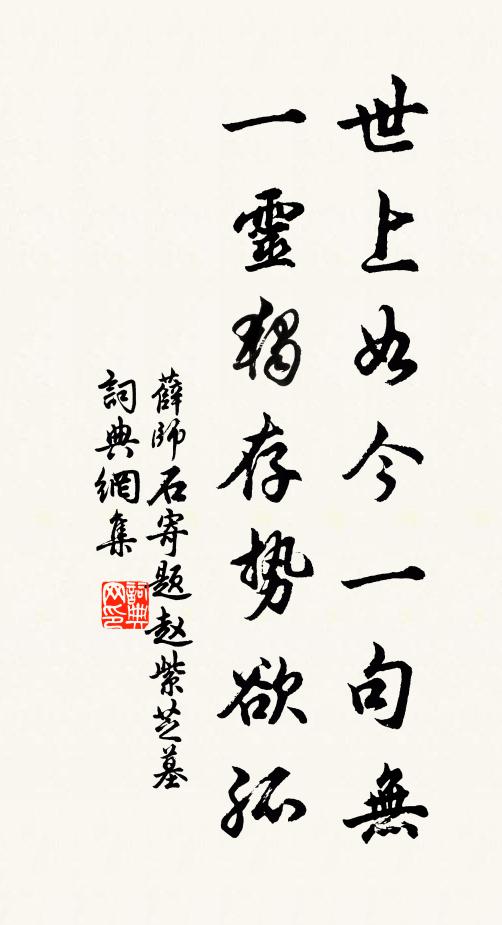 世上如今一句無
一靈獨存势欲孤
薛師石寄题赵紫芝墓
詞典網集
詞典
网印